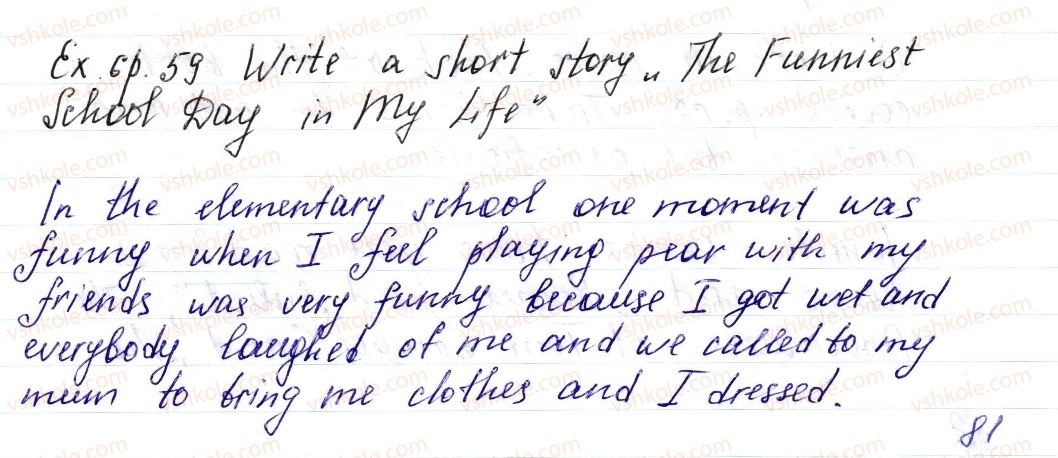 Ex. 6p. 59 Write a short story „The Funniest
School Day in My Life"
In the elementary school one moment was
funny when I feel playing pear with my
friends was very funny because I got wet and
everybody laughed of me and we called to my
mum to bring me clothes and I dressed.
81